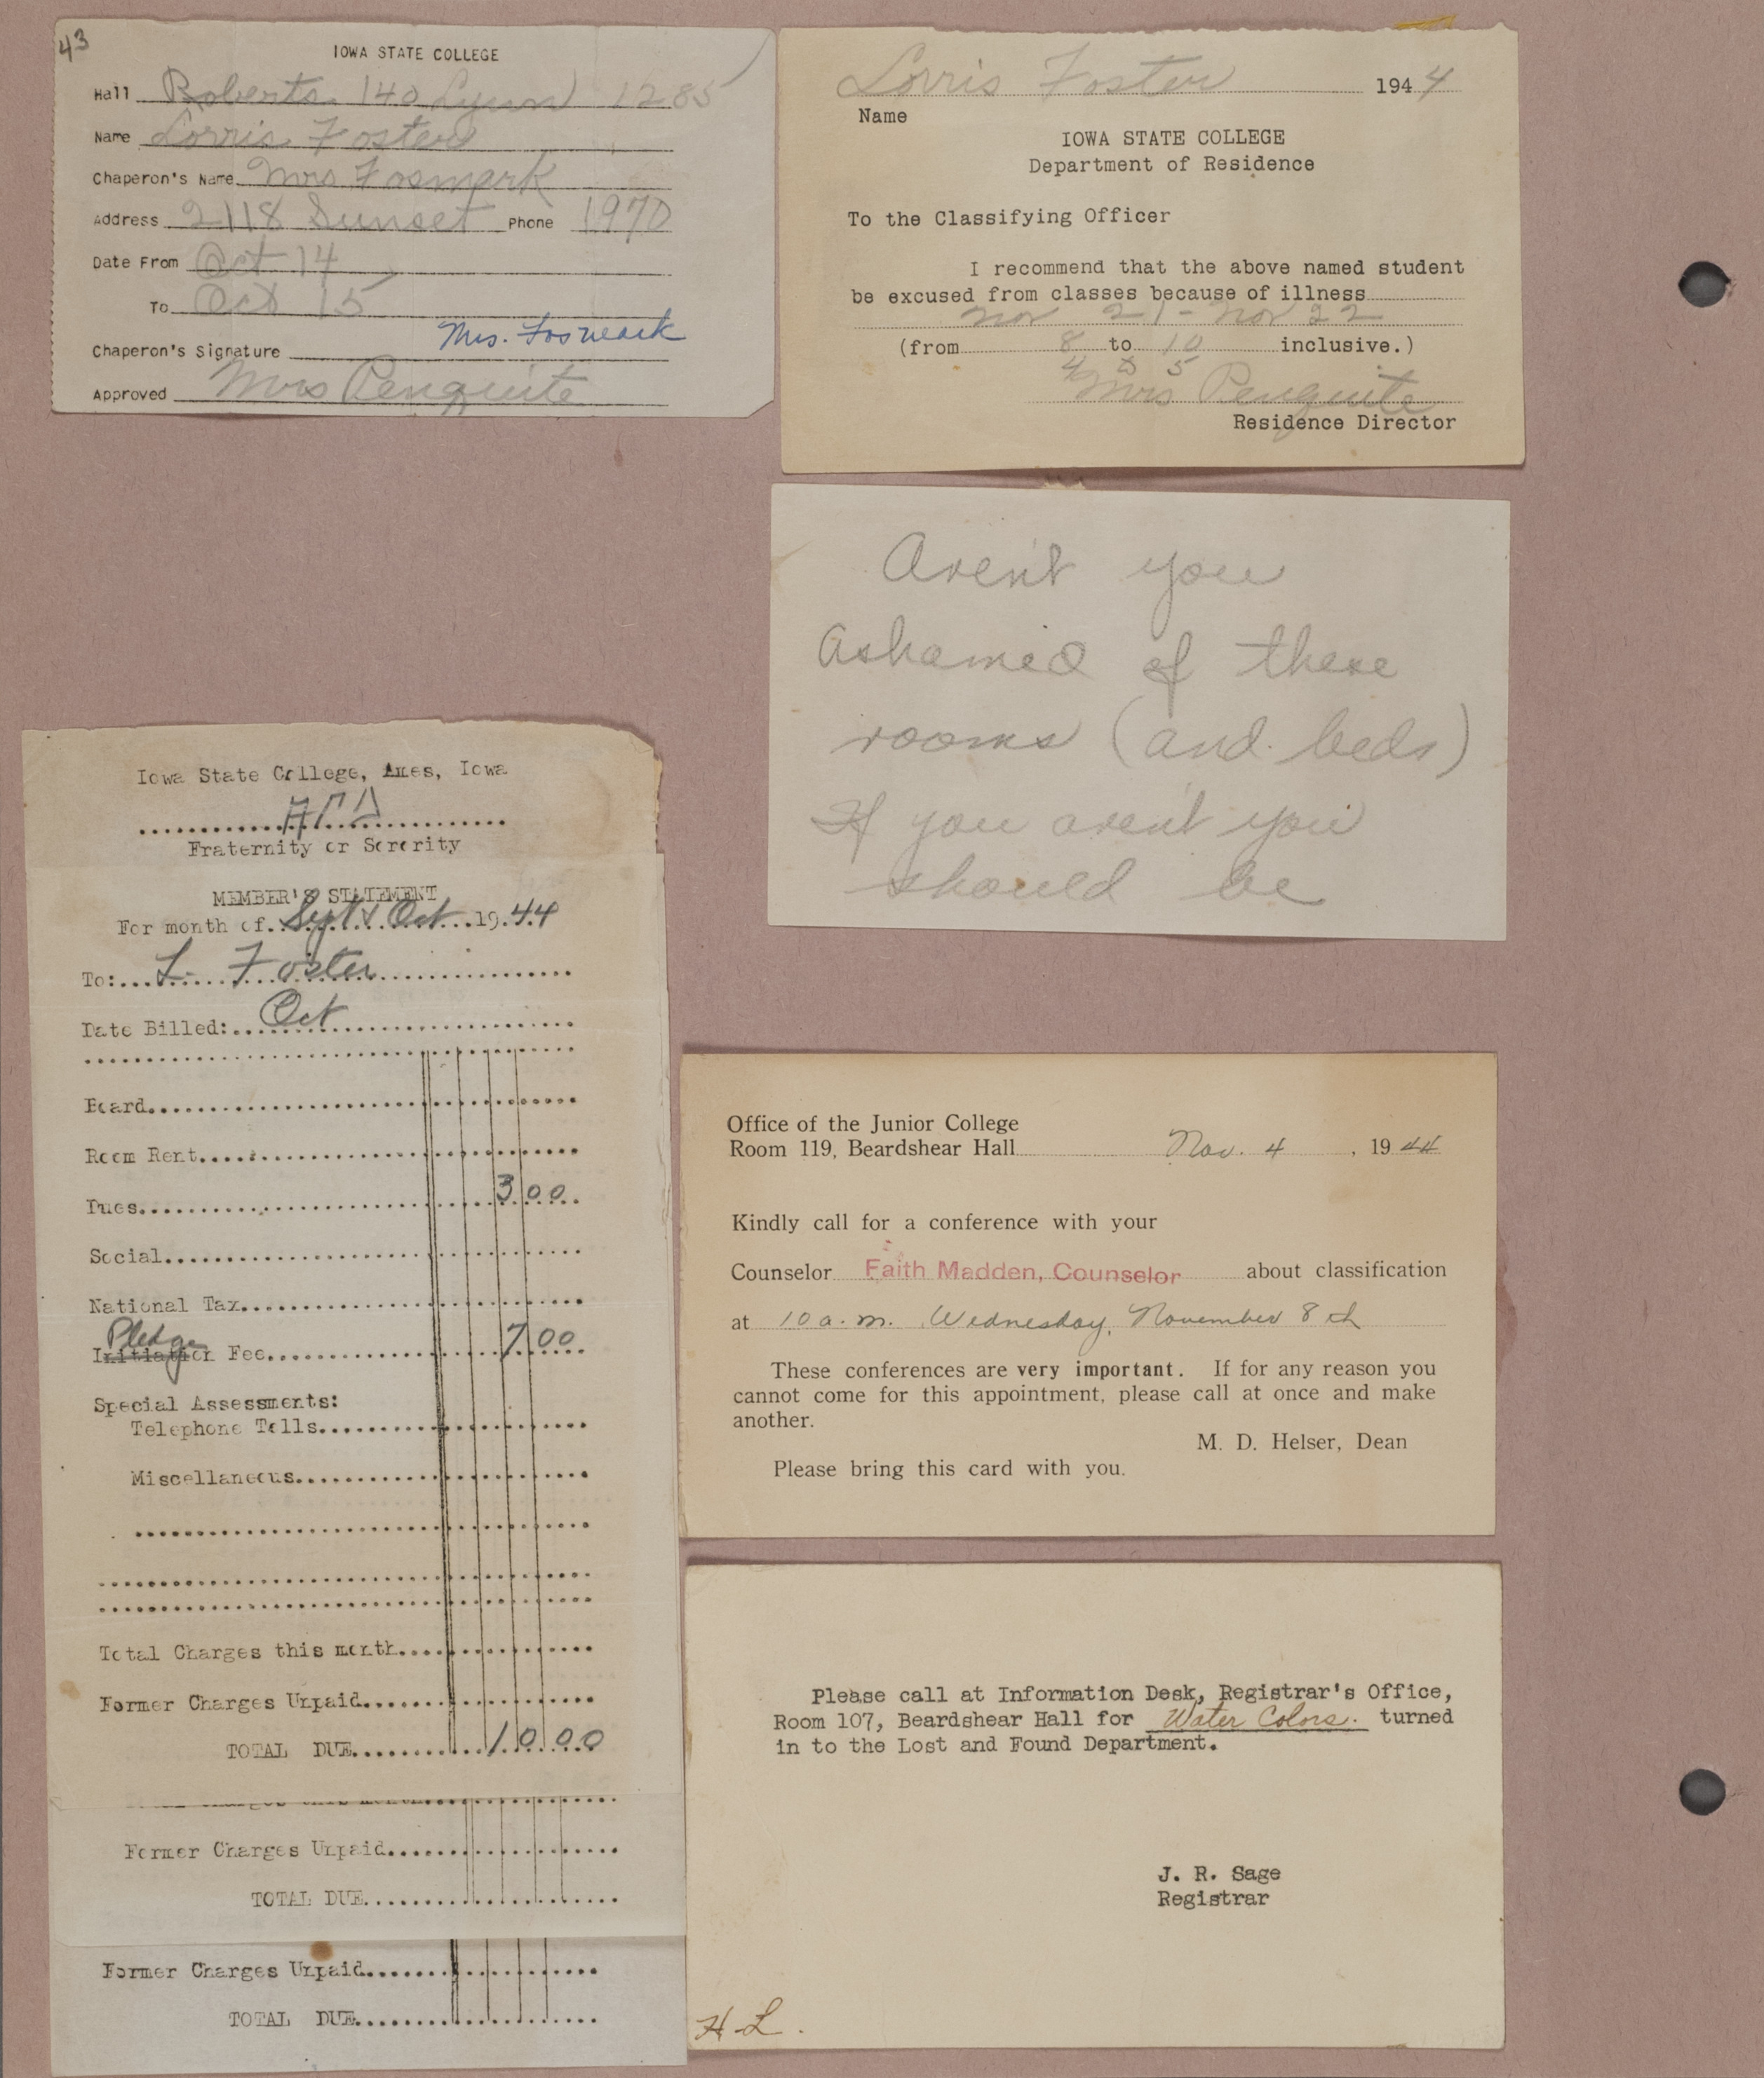 43
IOWA STATE COLLEGE
Hall Roberts 140 Lynn 1285
Name Lorris Foster
Chaperon's Name Mrs Fosmark
Address 2118 Sunset Phone 1970
Date From Oct 14
To Oct 15
Mrs. Fosmark
Chaperon's Signature
Approved Mrs Penquite
Lorris Foster 1944
Name
IOWA STATE COLLEGE
Department of Residence
To the Classifying Officer
I recommend that the above named student
be excused from classes because of illness
Nov 21 - Nov 22
(from 8 to 10 inclusive.)
4 to 5
Mrs Penquite
Residence Director
Aren't you
ashamed of these
rooms (and beds)
If you aren't you
should be
Iowa State College, Ames, Iowa
ΑΓΔ
Fraternity or Sorority
MEMBER'S STATEMENT
For month of Sept & Oct 1944
To: L. Foster
Date Billed: Oct
Board
Room Rent
Dues 3 00
Social
National Tax
Pledge
Initiation Fee 7 00
Special Assessments:
Telephone Tolls
Miscellaneous
Total Charges this month
Former Charges Unpaid
TOTAL DUE 10 00
Former Charges Unpaid
TOTAL DUE
Former Charges Unpaid
TOTAL DUE
Office of the Junior College
Room 119, Beardshear Hall Nov. 4, 1944
Kindly call for a conference with your
Counselor Faith Madden, Counselor about classification
at 10 a.m. Wednesday, November 8th
These conferences are very important. If for any reason you
cannot come for this appointment, please call at once and make
another.
M. D. Helser, Dean
Please bring this card with you.
Please call at Information Desk, Registrar's Office,
Room 107, Beardshear Hall for Water Colors. turned
in to the Lost and Found Department.
J. R. Sage
Registrar
H.L.